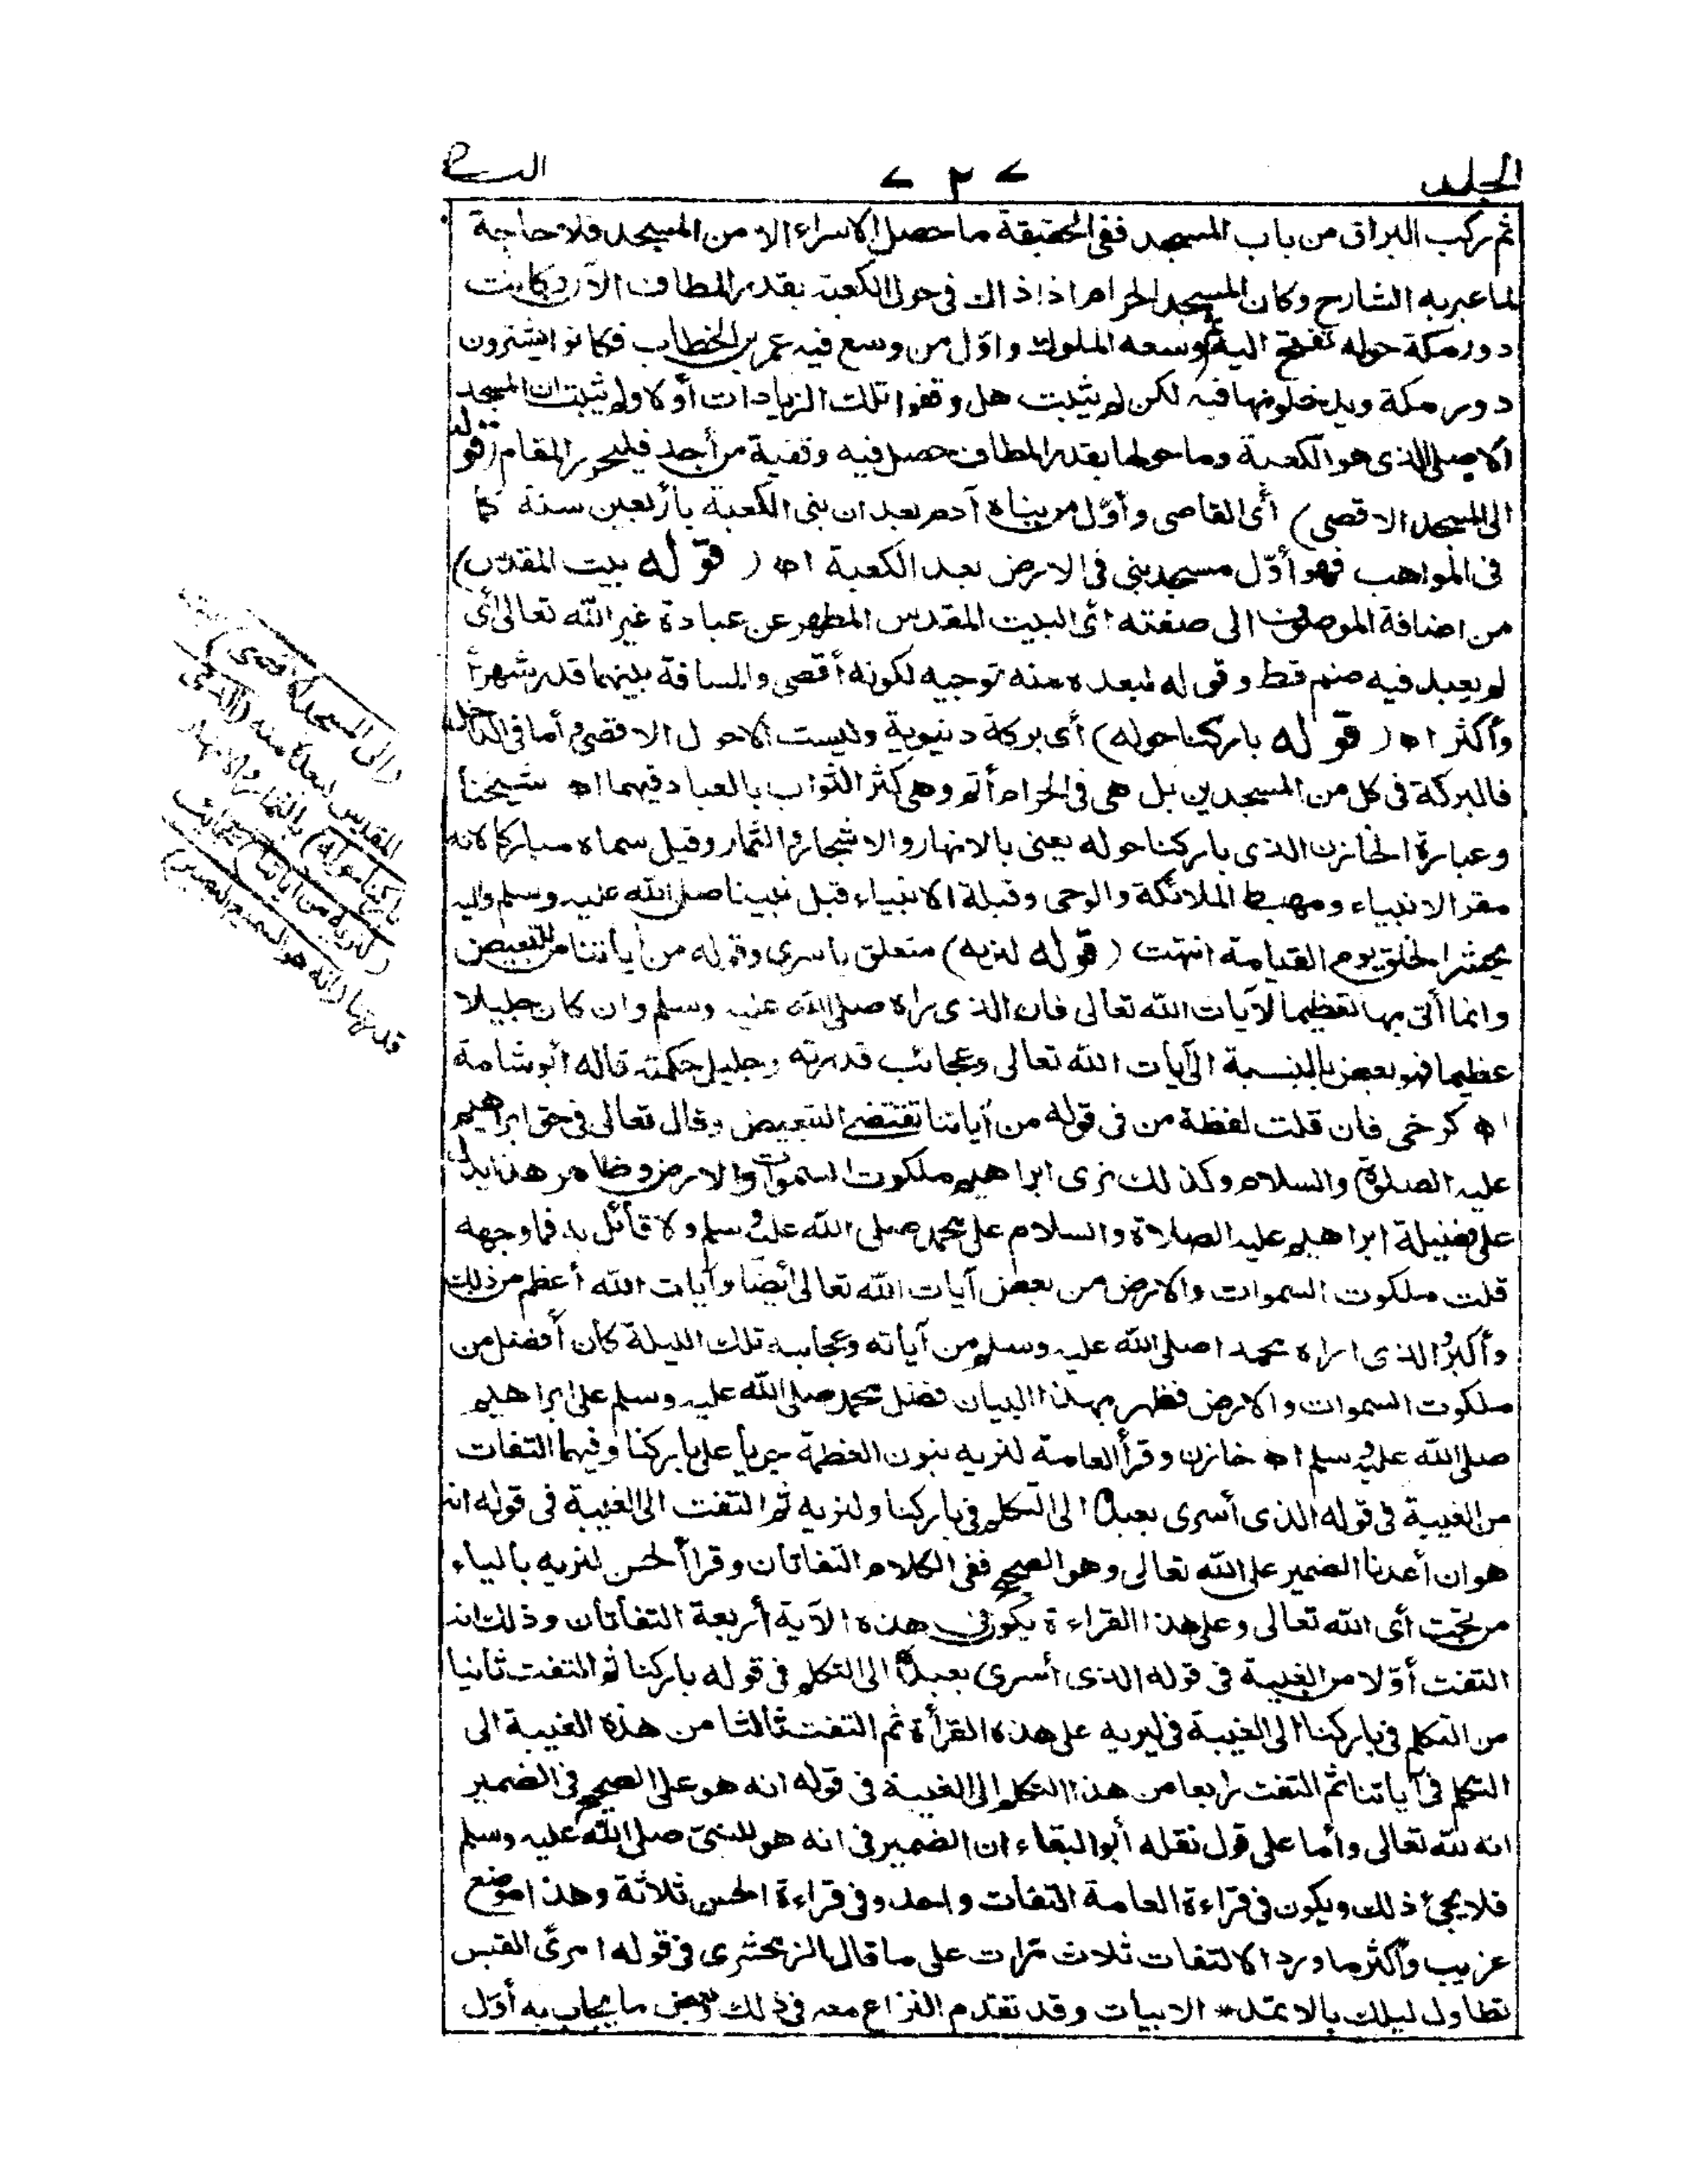 الجلد ٢ السبع
ثم ركب البراق من باب المسجد ففى الحقيقة ما حصل الاسراء الا من المسجد فلا حاجة
لما عبر به الشارح وكان المسجد الحرام اذ ذاك فى حول الكعبة بقدر المطاف الآن وكانت
دور مكة حوله تفتح اليه ثم وسعه الملوك واوّل من وسع فيه عمر بن الخطاب فكانوا يشترون
دور مكة ويدخلونها فيه لكن لم يثبت هل وقفوا تلك الزيادات أو لا ولم يثبت ان المسجد
الاصلى الذى هو الكعبة وما حولها بقدر المطاف حصل فيه وقفية من أحد فليحرر المقام (قوله
الى المسجد الاقصى) أى القاصى وأوّل من بناه آدم بعد ان بنى الكعبة بأربعين سنة كما
فى المواهب فهو أوّل مسجد بنى فى الارض بعد الكعبة اه (قوله بيت المقدس)
من اضافة الموصوف الى صفته أى البيت المقدس المطهر عن عبادة غير الله تعالى أى
لم يعبد فيه صنم قط وقوله لبعده منه توجيه لكونه أقصى والمسافة بينهما قدر شهر أ
وأكثر اه (قوله باركنا حوله) أى بركة دنيوية وليست الا حول الاقصى أما فى الداخل
فالبركة فى كل من المسجدين بل هى فى الحرام أتم وهى كثر الثواب بالعباد فيهما اه شيخنا
وعبارة الخازن الذى باركنا حوله يعنى بالانهار والاشجار والثمار وقيل سماه مباركا لانه
مقر الانبياء ومهبط الملائكة والوحى وقبلة الانبياء قبل نبينا صلى الله عليه وسلم واليه
يحشر الخلق يوم القيامة انتهت (قوله لنريه) متعلق باسرى وقوله من آياتنا من للتبعيض
وانما أتى بها تعظيما لآيات الله تعالى فان الذى رآه صلى الله عليه وسلم وان كان جليلا
عظيما فهو بعض بالنسبة الى آيات الله تعالى وعجائب قدرته وجليل حكمته قاله أبو شامة
اه كرخى فان قلت لفظة من فى قوله من آياتنا تقتضى التبعيض وقال تعالى فى حق ابراهيم
عليه الصلوة والسلام وكذلك نرى ابراهيم ملكوت السموات والارض وظاهر هذا يدل
على فضيلة ابراهيم عليه الصلاة والسلام على محمد صلى الله عليه وسلم ولا قائل به فما وجهه
قلت ملكوت السموات والارض من بعض آيات الله تعالى أيضا وآيات الله أعظم من ذلك
وأكبر والذى اراه محمدا صلى الله عليه وسلم من آياته وعجايبه تلك الليلة كان أفضل من
ملكوت السموات والارض فظهر بهذا البيان فضل محمد صلى الله عليه وسلم على ابراهيم
صلى الله عليه وسلم اه خازن وقرأ العامة لنريه بنون العظمة جريا على باركنا وفيهما التفات
من الغيبة فى قوله الذى أسرى بعبده الى التكلم فى باركنا ولنريه ثم التفت الى الغيبة فى قوله انه
هو ان أعدنا الضمير على الله تعالى وهو الصحيح ففى الكلام التفاتان وقرأ الحسن لنريه بالياء
من تحت أى الله تعالى وعلى هذا القراءة يكون فى هذه الآية أربعة التفاتات وذلك انه
التفت أوّلا من الغيبة فى قوله الذى أسرى بعبده الى التكلم فى قوله باركنا ثم التفت ثانيا
من التكلم فى باركنا الى الغيبة فى ليريه على هذه القرأة ثم التفت ثالثا من هذه الغيبة الى
التكلم فى آياتنا ثم التفت رابعا من هذا التكلم الى الغيبة فى قوله انه هو على الصحيح فى الضمير
انه لله تعالى وأما على قول نقله أبو البقاء ان الضمير فى انه هو للنبىّ صلى الله عليه وسلم
فلا يجئ ذلك ويكون فى قراءة العامة التفات واحد وفى قراءة الحسن ثلاثة وهذا موضع
غريب وأكثر ما ورد الالتفات ثلاث مرّات على ما قال الزمخشرى فى قوله امرئ القيس
تطاول ليلك بالاثمد * الابيات وقد تقدم النزاع معه فى ذلك وبعض ما يجاب به أوّل
(الى المسجد الاقصى) بيت
المقدس لبعده منه (الذى
باركنا حوله) بالثمار والانهار
(لنريه من آياتنا) عجائب
قدرتنا (انه هو السميع البصير)